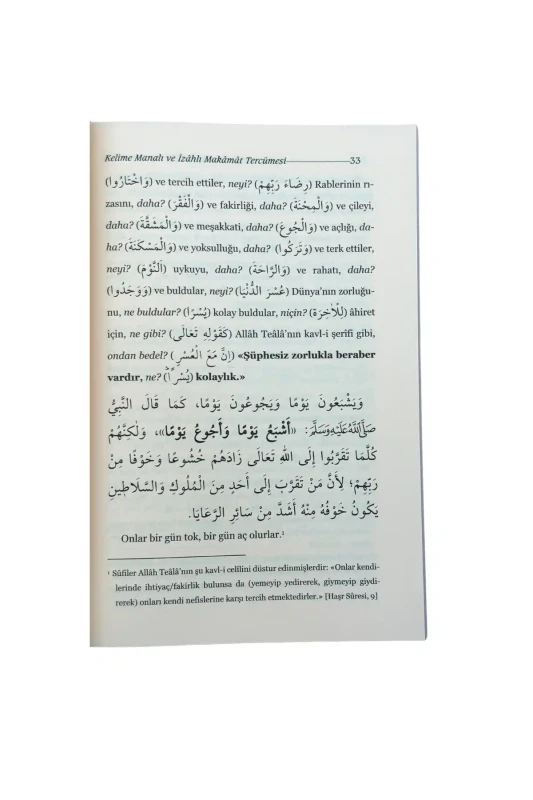 Kelime Manalı ve İzâhlı Makâmât Tercümesi 33
(وَاخْتَارُوا) ve tercih ettiler, neyi? (رِضَاءَ رَبِّهِمْ) Rablerinin rı-
zasını, daha? (وَالْفَقْرَ) ve fakirliği, daha? (وَالْمِحْنَةَ) ve çileyi,
daha? (وَالْمَشَقَّةَ) ve meşakkati, daha? (وَالْجُوعَ) ve açlığı, da-
ha? (وَالْمَسْكَنَةَ) ve yoksulluğu, daha? (وَتَرَكُوا) ve terk ettiler,
neyi? (اَلنَّوْمَ) uykuyu, daha? (وَالرَّاحَةَ) ve rahatı, daha?
(وَوَجَدُوا) ve buldular, neyi? (عُسْرَ الدُّنْيَا) Dünya'nın zorluğu-
nu, ne buldular? (يُسْرًا) kolay buldular, niçin? (لِلْاٰخِرَةِ) âhiret
için, ne gibi? (كَقَوْلِهِ تَعَالَى) Allâh Teâlâ'nın kavl-i şerîfi gibi,
ondan bedel? (اِنَّ مَعَ الْعُسْرِ) «Şüphesiz zorlukla beraber
vardır, ne? (يُسْرًا) kolaylık.»
وَيَشْبَعُونَ يَوْمًا وَيَجُوعُونَ يَوْمًا، كَمَا قَالَ النَّبِيُّ
صَلَّى اللهُ عَلَيْهِ وَسَلَّمَ: «أَشْبَعُ يَوْمًا وَأَجُوعُ يَوْمًا»، وَلٰكِنَّهُمْ
كُلَّمَا تَقَرَّبُوا إِلَى اللهِ تَعَالَى زَادَهُمْ خُشُوعًا وَخَوْفًا مِنْ
رَبِّهِمْ؛ لِأَنَّ مَنْ تَقَرَّبَ إِلَى أَحَدٍ مِنَ الْمُلُوكِ وَالسَّلَاطِينِ
يَكُونُ خَوْفُهُ مِنْهُ أَشَدَّ مِنْ سَائِرِ الرَّعَايَا.
Onlar bir gün tok, bir gün aç olurlar.¹
¹ Sûfiler Allâh Teâlâ'nın şu kavl-i celîlini düstur edinmişlerdir: «Onlar kendi-
lerinde ihtiyaç/fakirlik bulunsa da (yemeyip yedirerek, giymeyip giydi-
rerek) onları kendi nefislerine karşı tercih etmektedirler.» [Haşr Sûresi, 9]